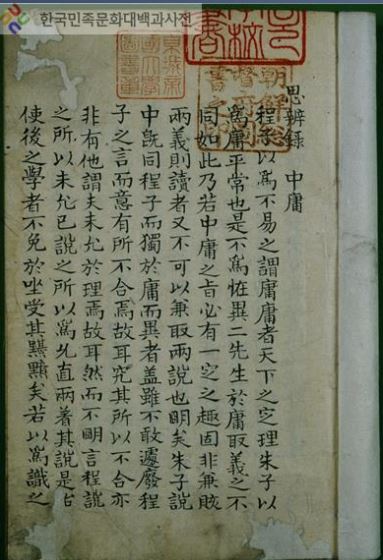 한국민족문화대백과사전
思辨錄 中庸
程子以爲不易之謂庸庸者天下之定理朱子以
爲庸平常也是不爲恠異二先生於庸取義之不
同如此乃若中庸之旨必有一定之趣固非兼賅
兩義則讀者又不可以兼取兩說也明矣朱子說
中旣同程子而獨於庸而異者盖雖不敢遽廢程
子之言而意有所不合焉故耳究其所以不合亦
非有他謂夫未允於理焉故耳然而不明言程說
之所以未允已說之所以爲允直兩著其說是
使後之學者不免於坐受其黮矣若以爲識之